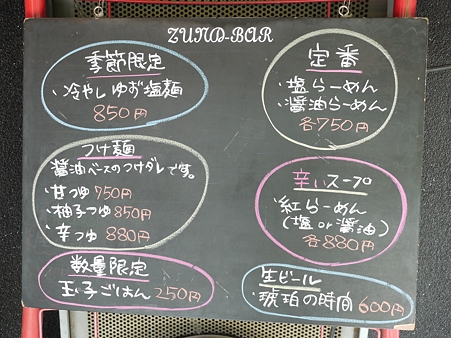 ZUND-BAR
季節限定
・冷やしゆず塩麺
850円
定番
・塩らーめん
・醤油らーめん
各750円
つけ麺
醤油ベースのつけダレです。
・甘つゆ 750円
・柚子つゆ 850円
・辛つゆ 880円
辛いスープ
・紅らーめん
(塩or醤油)
各880円
数量限定
玉子ごはん 250円
生ビール
・琥珀の時間 600円